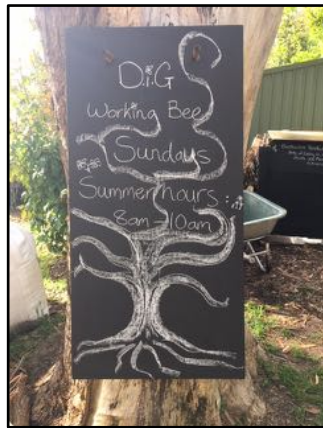 D.i.G
Working Bee
Sundays
Summer hours :
8am - 10am